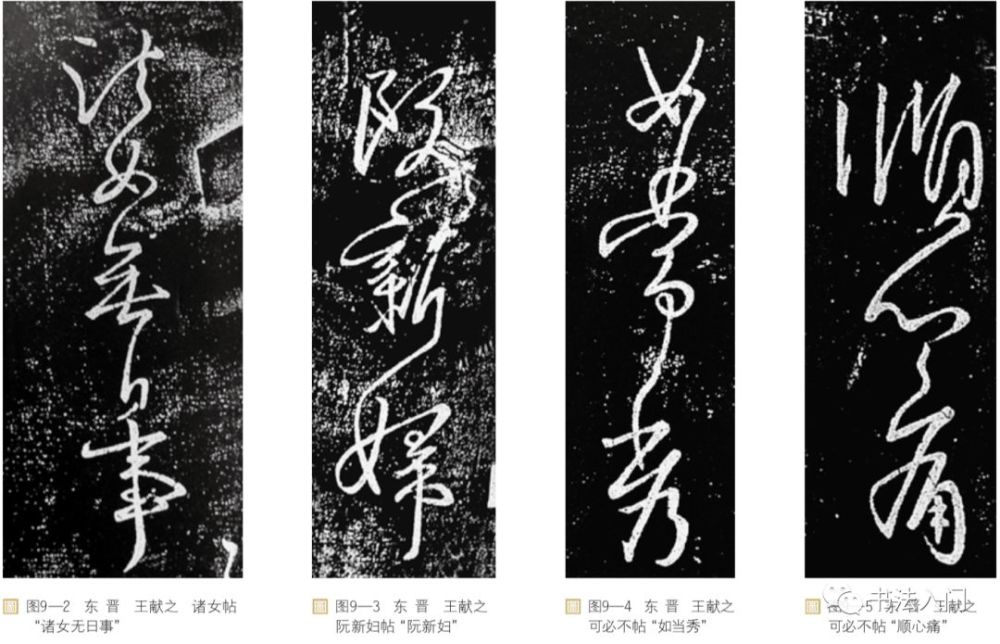 諸女無日事
阮新婦
如當秀
順心痛
圖 图9—2 东 晋 王献之 诸女帖
“诸女无日事”
圖 图9—3 东 晋 王献之
阮新妇帖“阮新妇”
圖 图9—4 东 晋 王献之
可必不帖“如当秀”
—5 东 晋 王献之
可必不帖“顺心痛”
书法入门